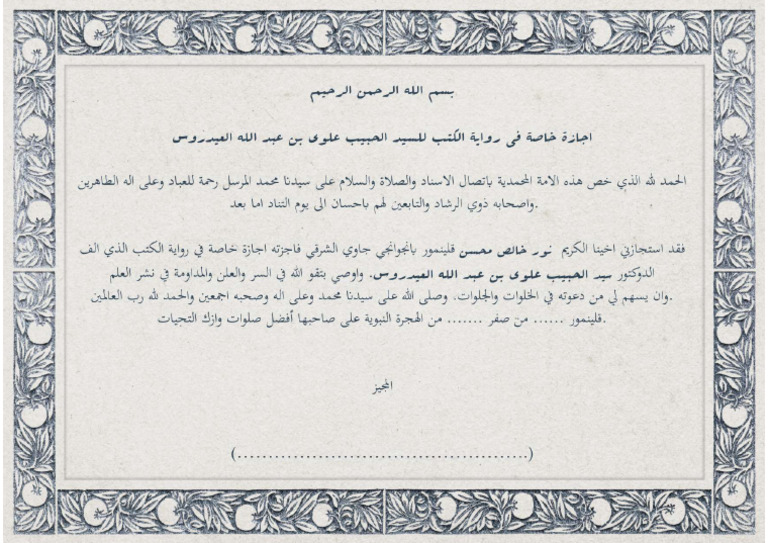 بسم الله الرحمن الرحيم
اجازة خاصة فى رواية الكتب للسيد الحبيب علوى بن عبد الله العيدروس
الحمد لله الذي خص هذه الامة المحمدية باتصال الاسناد والصلاة والسلام على سيدنا محمد المرسل رحمة للعباد وعلى اله الطاهرين
.واصحابه ذوي الرشاد والتابعين لهم باحسان الى يوم التناد اما بعد
فقد استجازني اخينا الكريم نور خالص محسن قلينمور بانجوانجي جاوي الشرقي فاجزته اجازة خاصة في رواية الكتب الذي الف
الدوكتور سيد الحبيب علوى بن عبد الله العيدروس. واوصي بتقو الله في السر والعلن والمداومة في نشر العلم
.وان يسهم لي من دعوته في الخلوات والجلوات، وصلى الله على سيدنا محمد وعلى اله وصحبه اجمعين والحمد لله رب العالمين
.قلينمور ...... من صفر ....... من الهجرة النبوية على صاحبها أفضل صلوات وازك التحيات
المجيز
(...............................................)